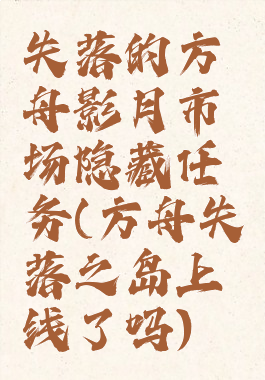 失落的方
舟影月市
场隐藏任
务(方舟失
落之岛上
线了吗)